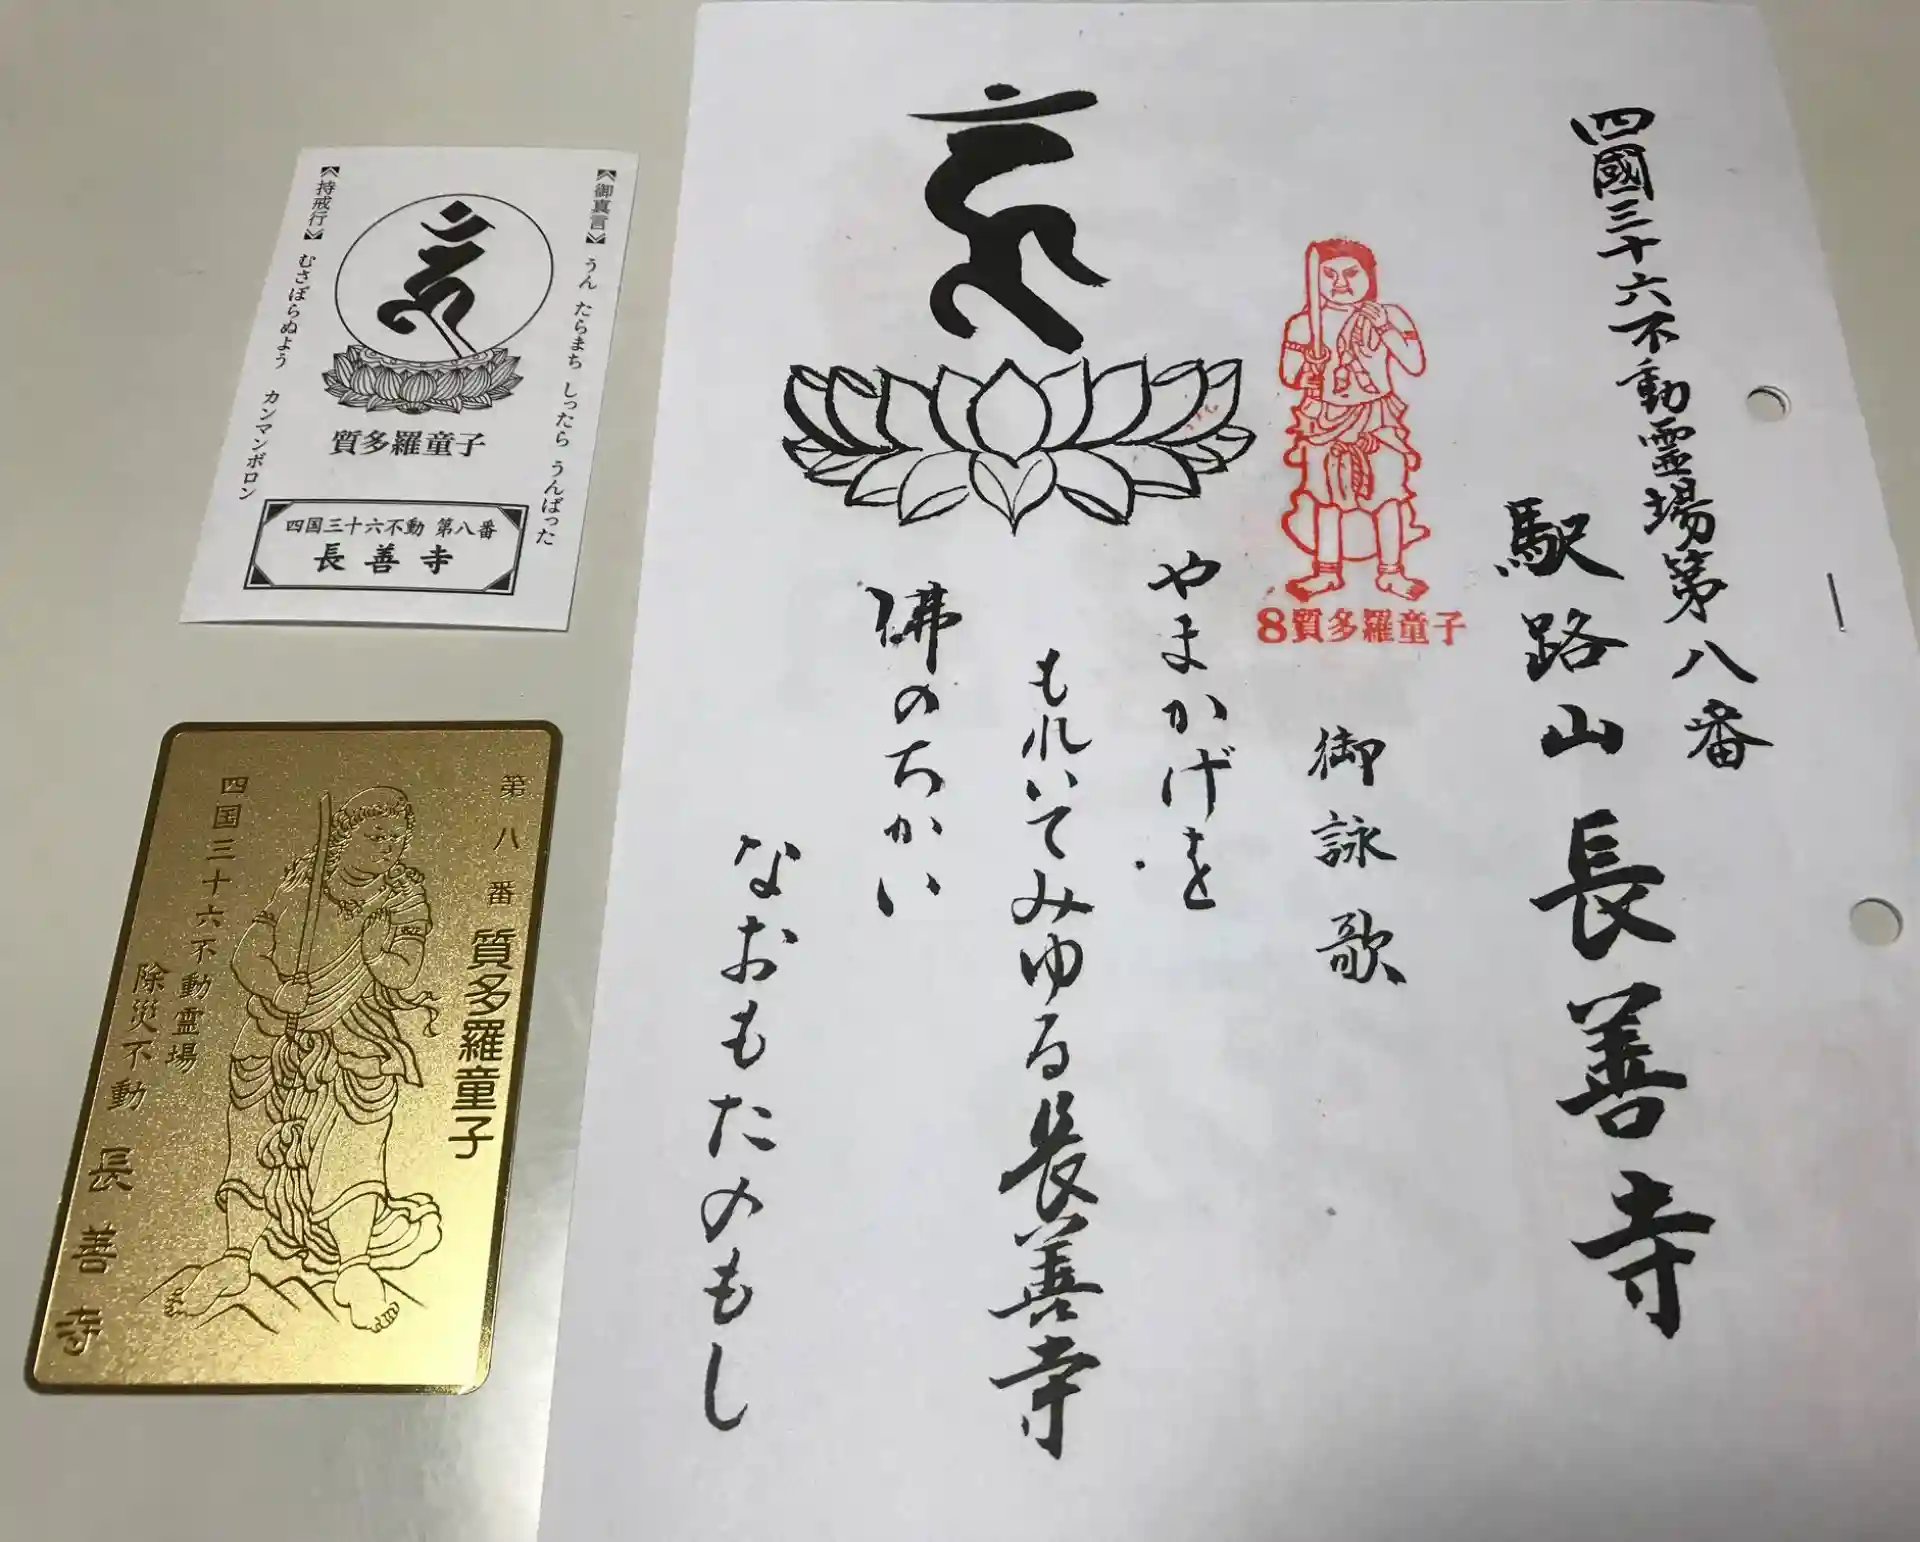 四國三十六不動霊場第八番
駅路山 長善寺
8質多羅童子
御詠歌
やまかげを
もれいてみゆる長善寺
佛のちかい
なおもたのもし
《御真言》 うん たらまち しったら うんぱった
質多羅童子
《持戒行》 むさぼらぬよう カンマンボロン
四国三十六不動 第八番
長善寺
第八番 質多羅童子
四国三十六不動霊場
除災不動 長善寺